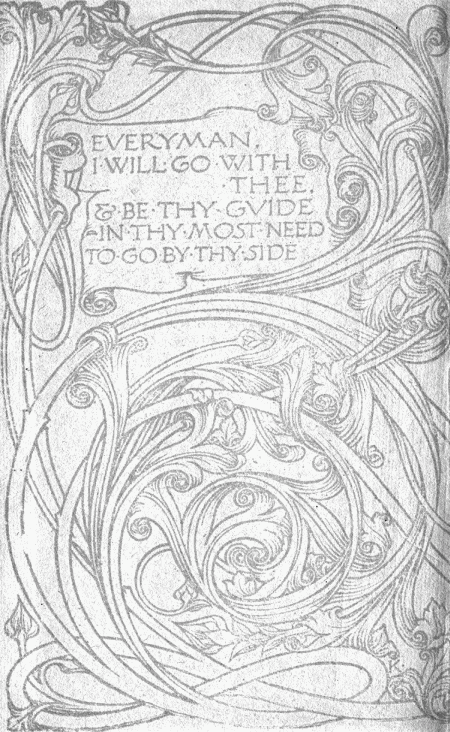 EVERYMAN,
I·WILL·GO·WITH
·THEE,
& BE·THY·GVIDE
-IN·THY·MOST·NEED
TO·GO·BY·THY·SIDE